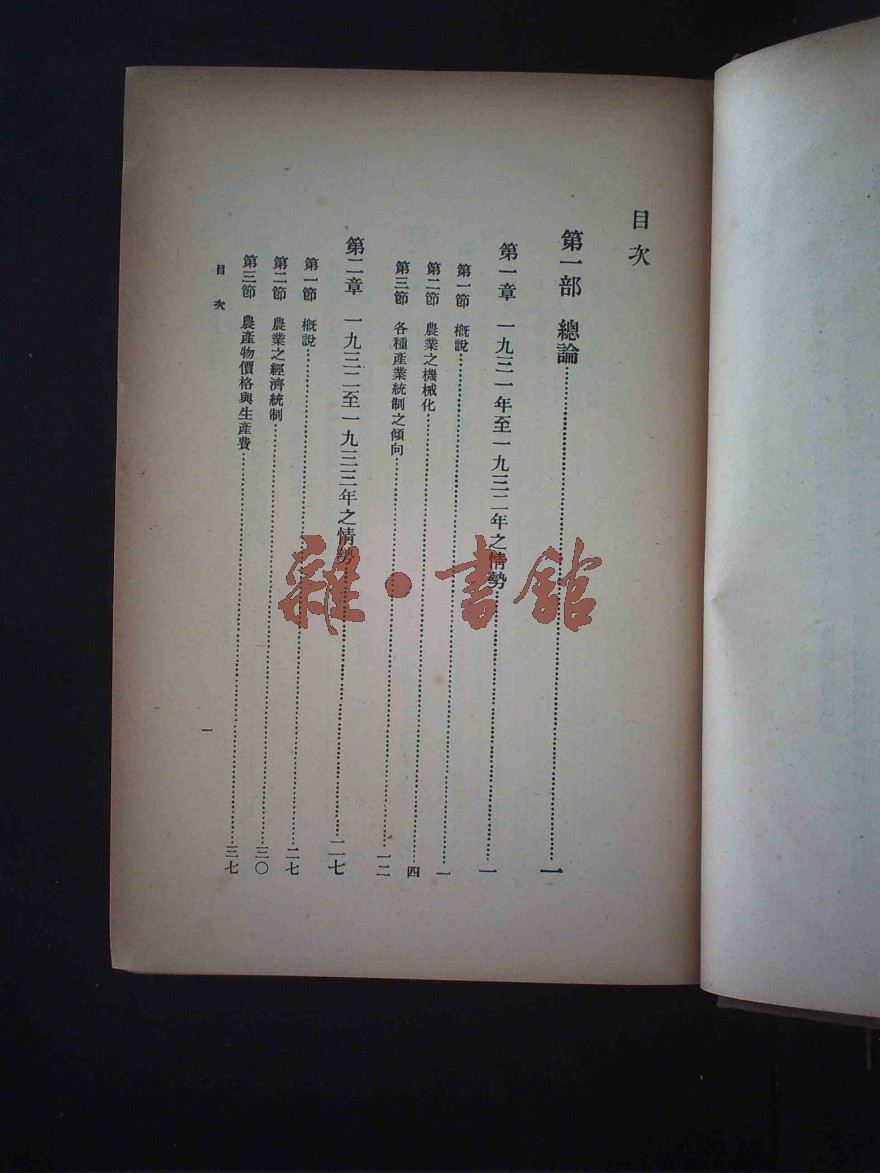 目次
第一部 總論…………一
第一章 一九三一年至一九三二年之情勢…………一
第一節 概說…………一
第二節 農業之機械化…………四
第三節 各種產業統制之傾向…………一二
第二章 一九三二至一九三三年之情勢…………二七
第一節 概說…………二七
第二節 農業之經濟統制…………三〇
第三節 農產物價格與生產費…………三七
目次
一
雜·書館